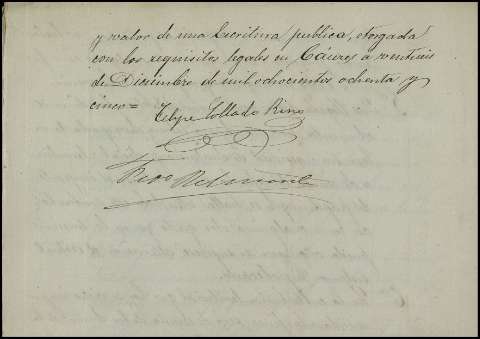 y valor de una Escritura publica, otorgada
con los requisitos legales en Cáceres a ventiseis
de Diciembre de mil ochocientos ochenta y
cinco =
Felipe Collado Rino